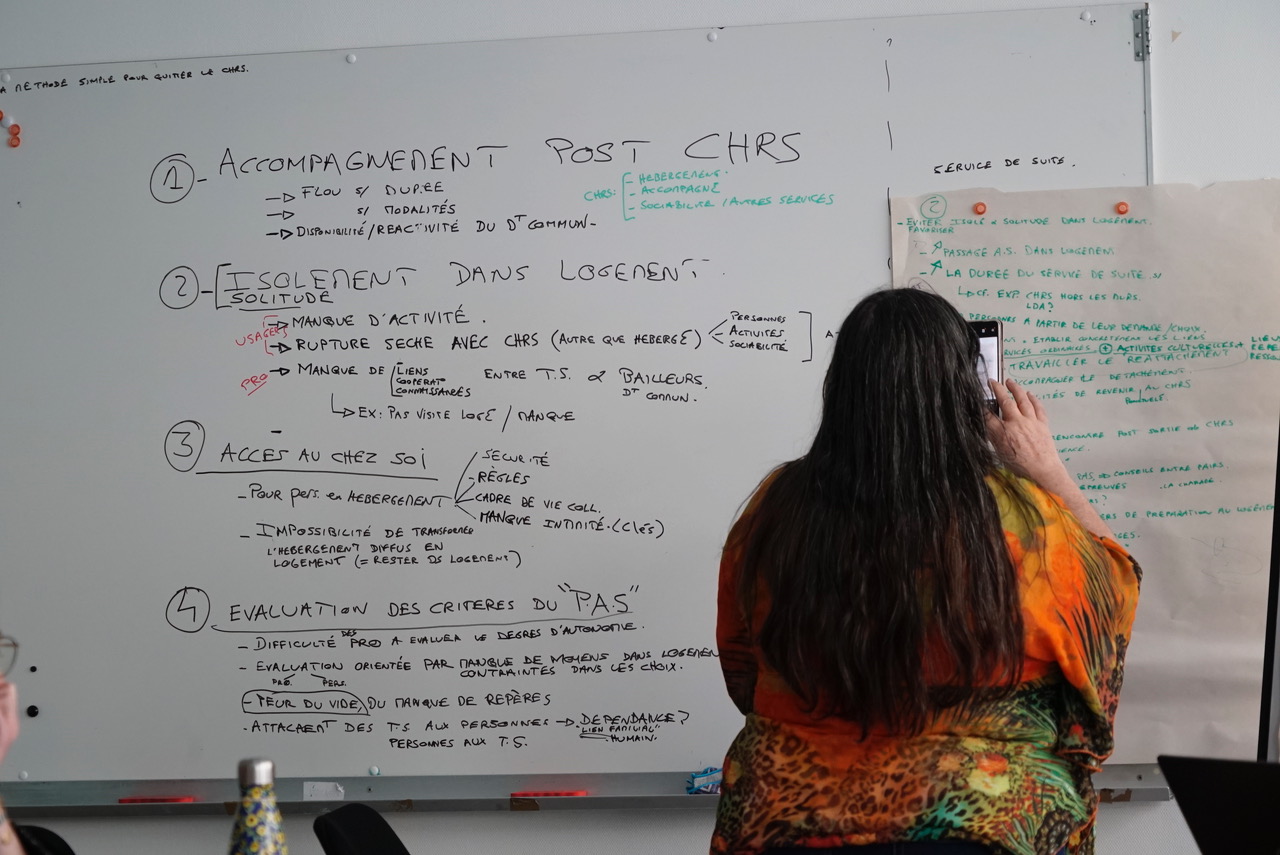 A METHODE SIMPLE POUR QUITTER LE CHRS.
① - ACCOMPAGNEMENT POST CHRS
→ FLOU S/ DUREE
→ S/ MODALITÉS
→ DISPONIBILITÉ/REACTIVITÉ DU DT COMMUN -
CHRS:
- HEBERGEMENT.
- ACCOMPAGNE
- SOCIABILITE / AUTRES SERVICES
② - ISOLEMENT DANS LOGEMENT.
SOLITUDE
USAGERS
→ MANQUE D'ACTIVITÉ.
→ RUPTURE SECHE AVEC CHRS (AUTRE QUE HEBERGÉ)
PERSONNES
ACTIVITES
SOCIABILITÉ
PRO
→ MANQUE DE LIENS
COOPERAT°
CONNAISSANCES
ENTRE T.S. & BAILLEURS.
DT COMMUN.
→ EX: PAS VISITE LOGE / MANQUE
③ ACCES AU CHEZ SOI
- POUR PERS. en HEBERGEMENT
SECURITÉ
- RÈGLES
CADRE DE VIE COLL.
MANQUE INTIMITÉ. (CLÉS)
- IMPOSSIBILITÉ DE TRANSFORMER
L'HEBERGEMENT DIFFUS EN
LOGEMENT (= RESTER DS LOGEMENT)
④ EVALUATION DES CRITERES DU "P.A.S"
- DIFFICULTÉ DES PRO A EVALUER LE DEGRES D'AUTONOMIE.
- EVALUATION ORIENTÉE PAR MANQUE DE MOYENS DANS LOGEMEN
PRO. PERS.
CONTRAINTES DANS LES CHOIX.
- PEUR DU VIDE, DU MANQUE DE REPÈRES
- ATTACHENT DES T.S AUX PERSONNES → DEPENDANCE?
PERSONNES AUX T.S.
"LIEN FAMILIAL"
HUMAIN.
SERVICE DE SUITE.
②
- EVITER ISOLE & SOLITUDE DANS LOGEMENT.
FAVORISER
- ↗ PASSAGE A.S. DANS LOGEMENT
- ↗ LA DURÉE DU SERVICE DE SUITE S/
↳ CF. EXP. CHRS HORS LES MURS.
LDA?
PERSONNES A PARTIR DE LEUR DEMANDE/CHOIX.
ETABLIR CONCRETEMENT LES LIENS
+ ACTIVITES CULTURELLES +
TRAVAILLER LE REATTACHEMENT
LE DETACHEMENT.
DE REVENIR AU CHRS
RENCONTRE POST SORTIE DU CHRS
CONSEILS ENTRE PAIRS.
DE PREPARATION AU